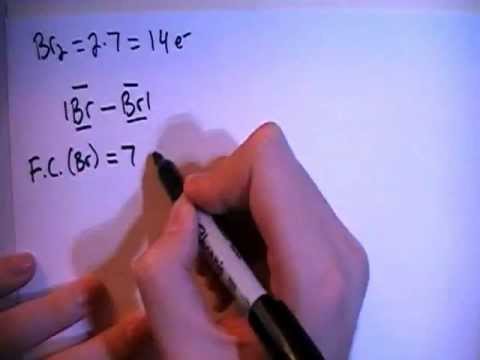 Br₂ = 2·7 = 14 e⁻
|B̲̅r̲̅ – B̲̅r̲̅|
F.C. (Br) = 7
Sharpie